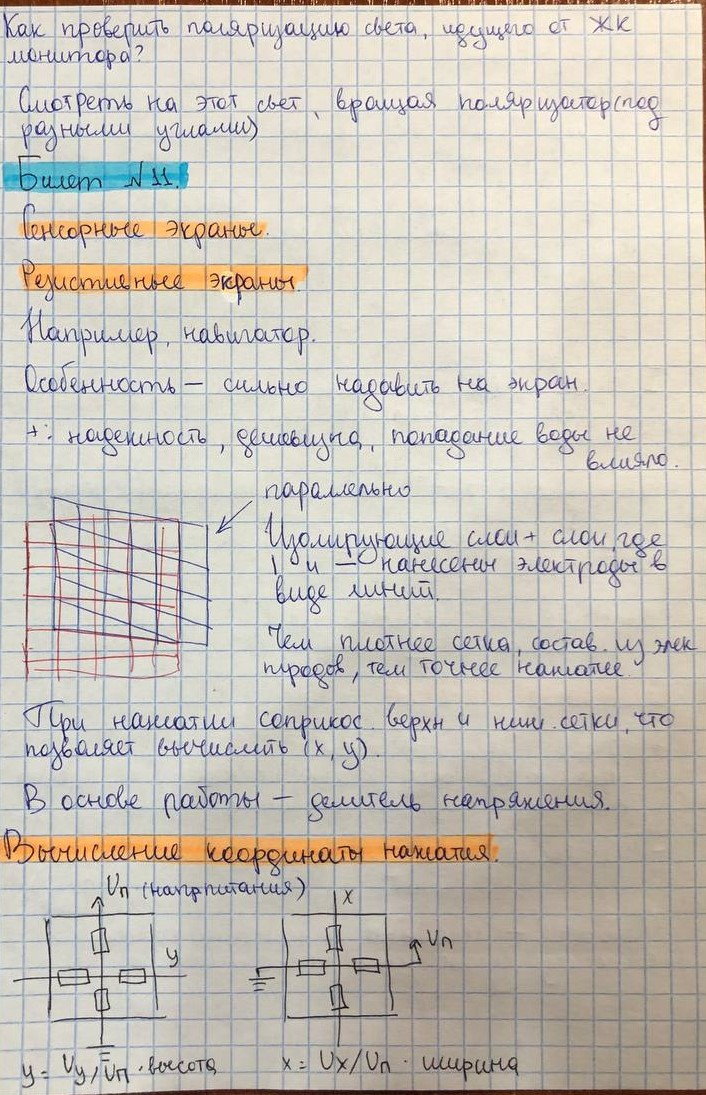 Как проверить поляризацию света, идущего от ЖК
монитора?
Смотреть на этот свет, вращая поляризатор (под
разными углами)
Билет №11.
Сенсорные экраны.
Резистивные экраны.
Например, навигатор.
Особенность — сильно надавить на экран.
+: надежность, дешевизна, попадание воды не
влияло.
параллельно
Изолирующие слои + слои, где
| и — нанесены электроды в
виде линий.
Чем плотнее сетка, состав. из элек
тродов, тем точнее нажатие.
При нажатии соприкос. верхн и ниж. сетки, что
позволяет вычислить (x, y).
В основе работы — делитель напряжения.
Вычисление координаты нажатия.
Uп (напр питания)
y
x
Uп
y = Uy/Uп · высота
x = Ux/Uп · ширина